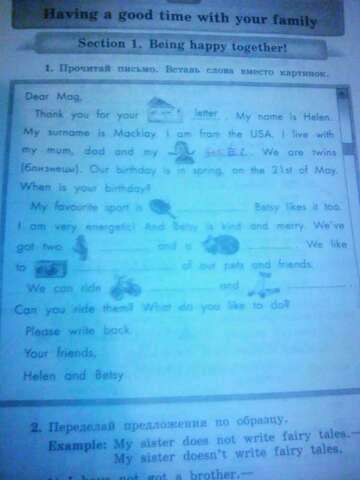 Having a good time with your family
Section 1. Being happy together!
1. Прочитай письмо. Вставь слова вместо картинок.
Dear Mag,
Thank you for your letter. My name is Helen.
My surname is Mackley. I am from the USA. I live with
my mum, dad and my . We are twins
(близнецы). Our birthday is in spring, on the 21st of May.
When is your birthday?
My favourite sport is Betsy likes it too.
I am very energetic! And Betsy is kind and merry. We've
got two and a . We like
to of our pets and friends.
We can ride and .
Can you ride them? What do you like to do?
Please write back.
Your friends,
Helen and Betsy
2. Переделай предложения по образцу.
Example: My sister does not write fairy tales.—
My sister doesn't write fairy tales.
I have not got a brother.—